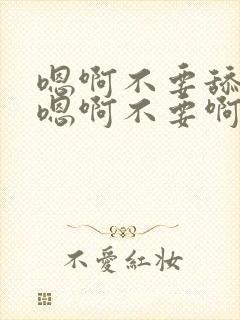 嗯啊不要舔
嗯啊不要啊
不愛紅妝